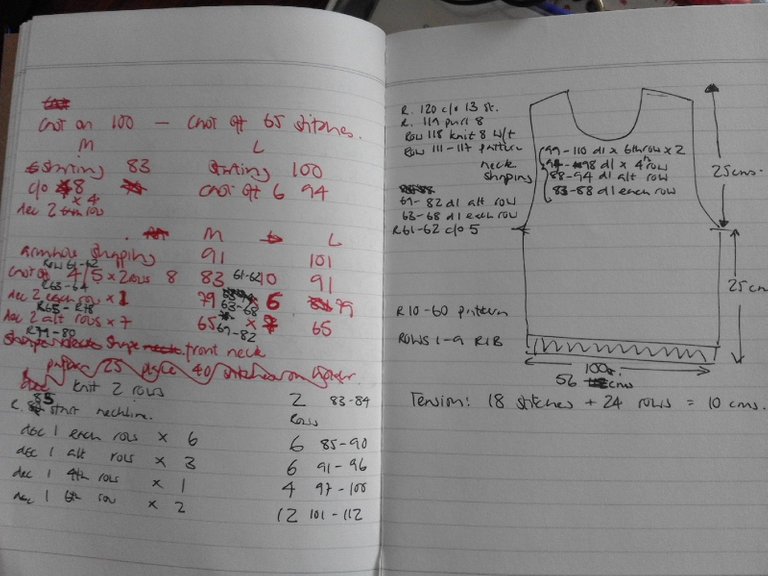 Cast on 100 — Cast off 65 stitches.
M L
starting 83 starting 100
c/o 8 Cast off 6 94
x 4
dec 2
M L
armhole shaping 91 101
Row 61-62
Cast off 4/5 x 2 rows 8 83 61-62 10 91
R63-64
Dec 2 each row x 1 79 63-68 6 79
R65-R78
Dec 2 alt rows x 7 65 69-82 65
R79-80
Shape front neck
25 40 stitches on
knit 2 rows 2 83-84
R. 85 start neckline. Rows
dec 1 each row x 6 6 85-90
dec 1 alt rows x 3 6 91-96
dec 1 4th row x 1 4 97-100
dec 1 6th row x 2 12 101-112
R. 120 c/o 13 st.
R. 119 purl 8
Row 118 knit 8 w/t
Row 111-117 pattern
neck
shaping
99-110 d1 x 6th row x 2
94-98 d1 x 4th row
88-94 d1 alt row
83-88 d1 each row
69-82 d1 alt row
63-68 d1 each row
R61-62 c/o 5
25cms.
25cm
R10-60 pattern
ROWS 1-9 RIB
100
56 cms
Tension: 18 stitches + 24 rows = 10 cms.